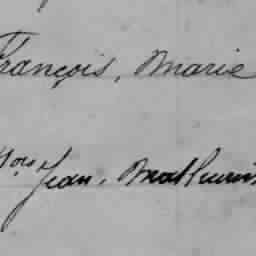 François, Marie
Jean, Mathurin